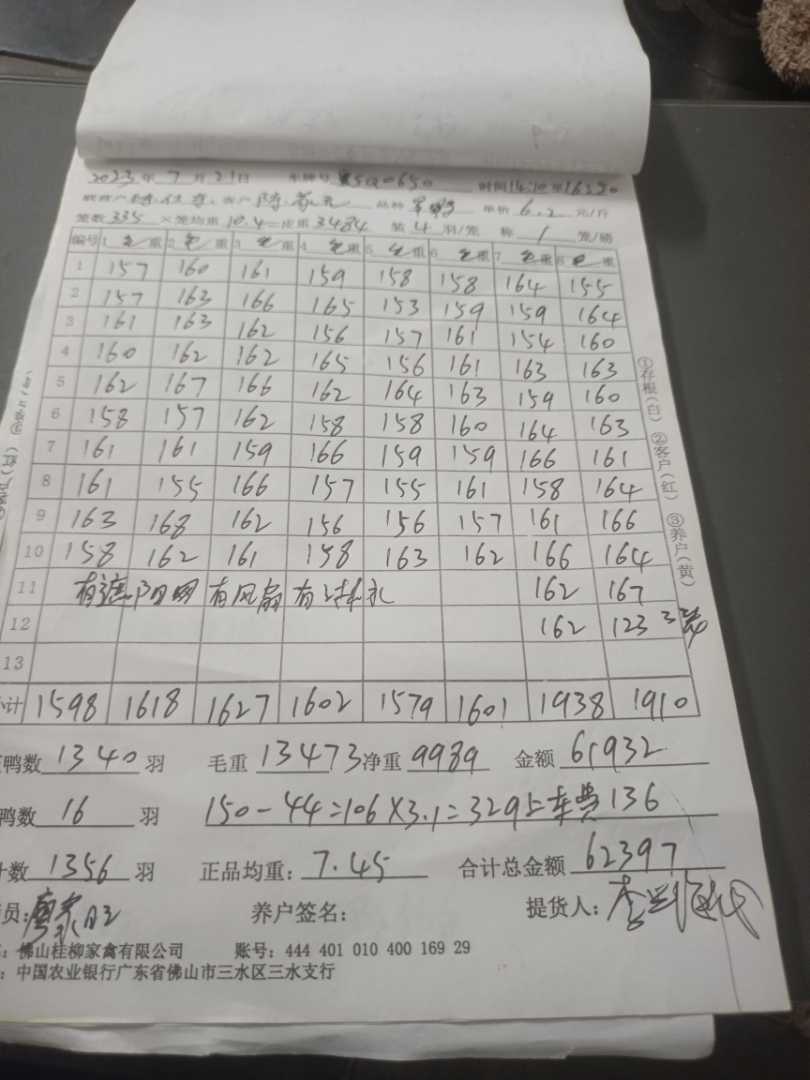 2023年7月21日 车牌号 5Q0650 时间14:10至16:20
品种 单价6.2元/斤
笼数335×笼均重10.4=皮重3484 装4羽/笼 称1笼/磅
编号 1毛重 2毛重 3毛重 4毛重 5毛重 6毛重 7毛重 8毛重
1 157 160 161 159 158 158 164 155
2 157 163 166 165 153 159 159 164
3 161 163 162 156 157 161 154 160
4 160 162 162 165 156 161 163 163
5 162 167 166 162 164 163 159 160
6 158 157 162 158 158 160 164 163
7 161 161 159 166 159 159 166 161
8 161 155 166 157 155 161 158 164
9 163 168 162 156 156 157 161 166
10 158 162 161 158 163 162 166 164
11 有遮阳网 有风扇 有 162 167
12 162 123 3笼
13
小计 1598 1618 1627 1602 1579 1601 1938 1910
鸭数1340羽 毛重13473 净重9989 金额61932
鸭数16羽 150-44=106×3.1=329 上车费136
计数1356羽 正品均重:7.45 合计总金额62397
员: 养户签名: 提货人:
:佛山桂柳家禽有限公司 账号:444 401 010 400 169 29
:中国农业银行广东省佛山市三水区三水支行
①存根(白) ②客户(红) ③养户(黄)